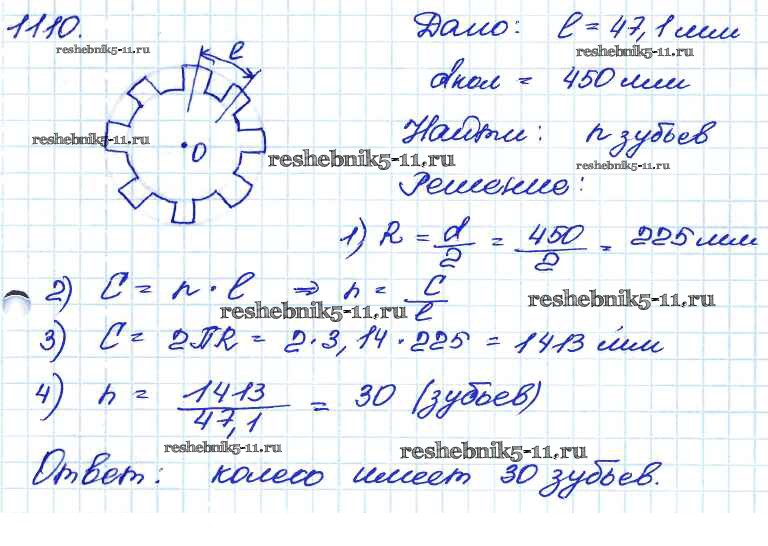 1110.
Дано: l = 47,1 мм
reshebnik5-11.ru
reshebnik5-11.ru
l
dкол = 450 мм
reshebnik5-11.ru
O
Найти: n зубьев
reshebnik5-11.ru
reshebnik5-11.ru
Решение:
1) R = d/2 = 450/2 = 225 мм
2) C = n · l ⇒ n = C/l
reshebnik5-11.ru
reshebnik5-11.ru
3) C = 2ПR = 2·3,14·225 = 1413 мм
4) n = 1413/47,1 = 30 (зубьев)
reshebnik5-11.ru
reshebnik5-11.ru
Ответ: колесо имеет 30 зубьев.